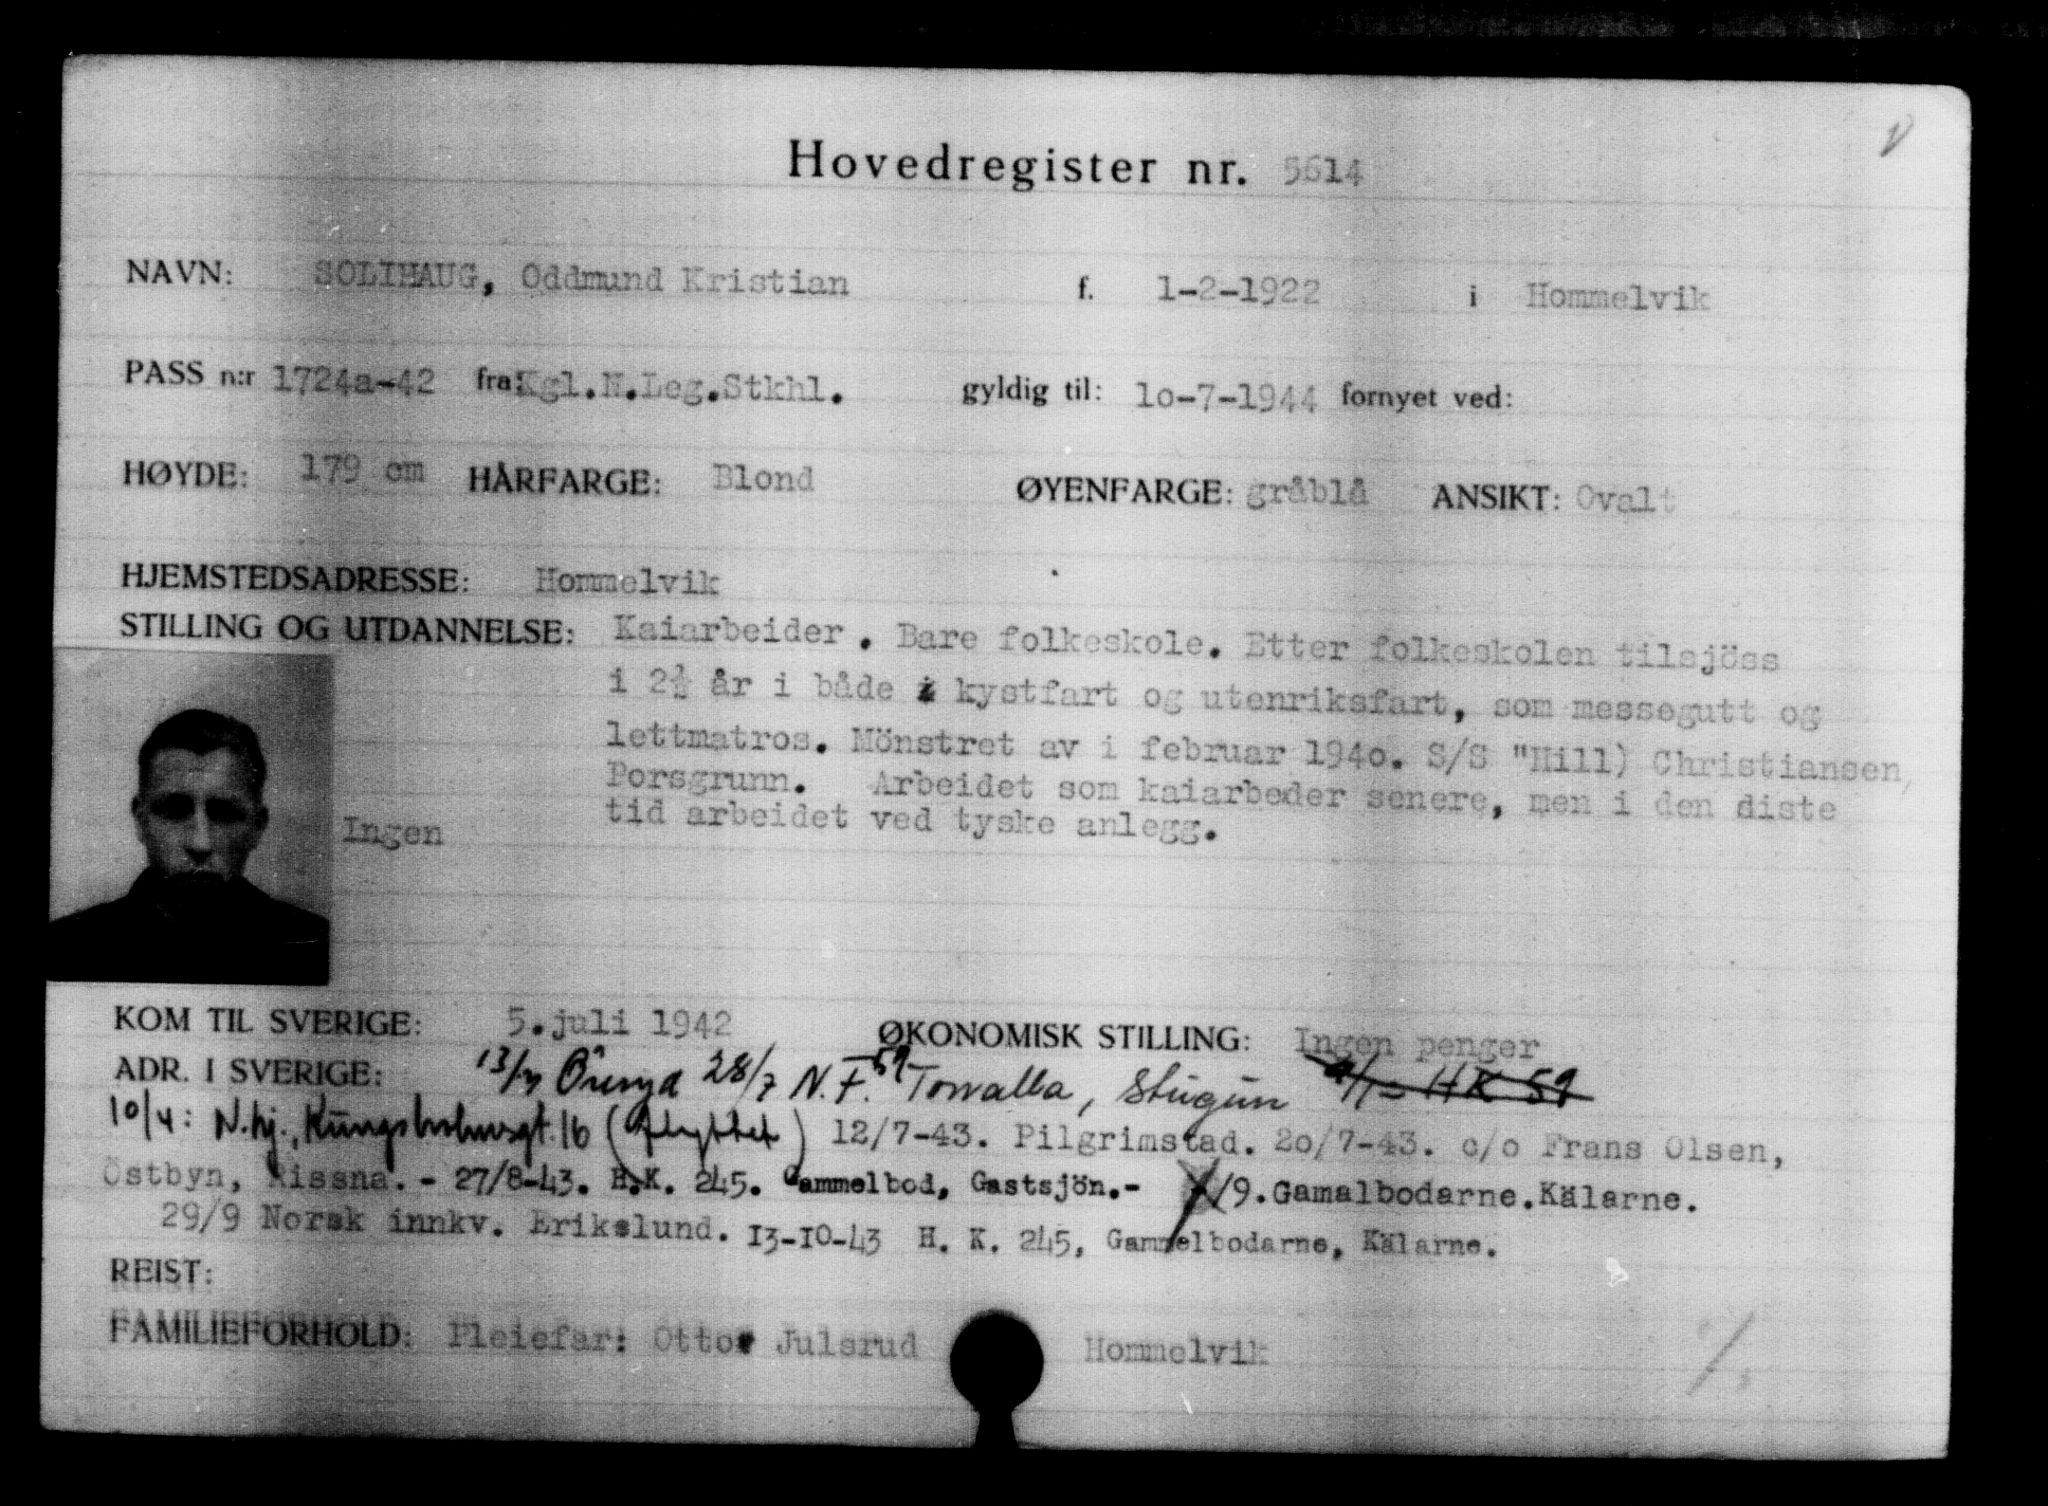 Hovedregister nr. 5614
NAVN: SOLIHAUG, Oddmund Kristian f. 1-2-1922 i Hommelvik
PASS n:r 1724a-42 fra: Kgl.N.Leg.Stkhl. gyldig til: 1o-7-1944 fornyet ved:
HØYDE: 179 cm HÅRFARGE: Blond ØYENFARGE: gråblå ANSIKT: Ovalt
HJEMSTEDSADRESSE: Hommelvik
STILLING OG UTDANNELSE: Kaiarbeider. Bare folkeskole. Etter folkeskolen tilsjöss
i 2½ år i både i kystfart og utenriksfart, som messegutt og
lettmatros. Mönstret av i februar 194o. S/S "Hill) Christiansen,
Porsgrunn. Arbeidet som kaiarbeder senere, men i den diste
tid arbeidet ved tyske anlegg.
Ingen
KOM TIL SVERIGE: 5.juli 1942 ØKONOMISK STILLING: Ingen penger
ADR. I SVERIGE: 13/7 Öreryd 28/7 N.F. 59 Torvalla, Stugun HK 59
10/4: N.hj., Kungsholmsgt. 16 (flyttet) 12/7-43. Pilgrimstad. 2o/7-43. c/o Frans Olsen,
Östbyn, Rissna. - 27/8-43. H.K. 245. Gammelbod, Gastsjön.- /9. Gamalbodarne. Kälarne.
29/9 Norsk innkv. Erikslund. 13-10-43 H. K. 245, Gammelbodarne, Kälarne.
REIST:
FAMILIEFORHOLD: Pleiefar: Otto Julsrud Hommelvik